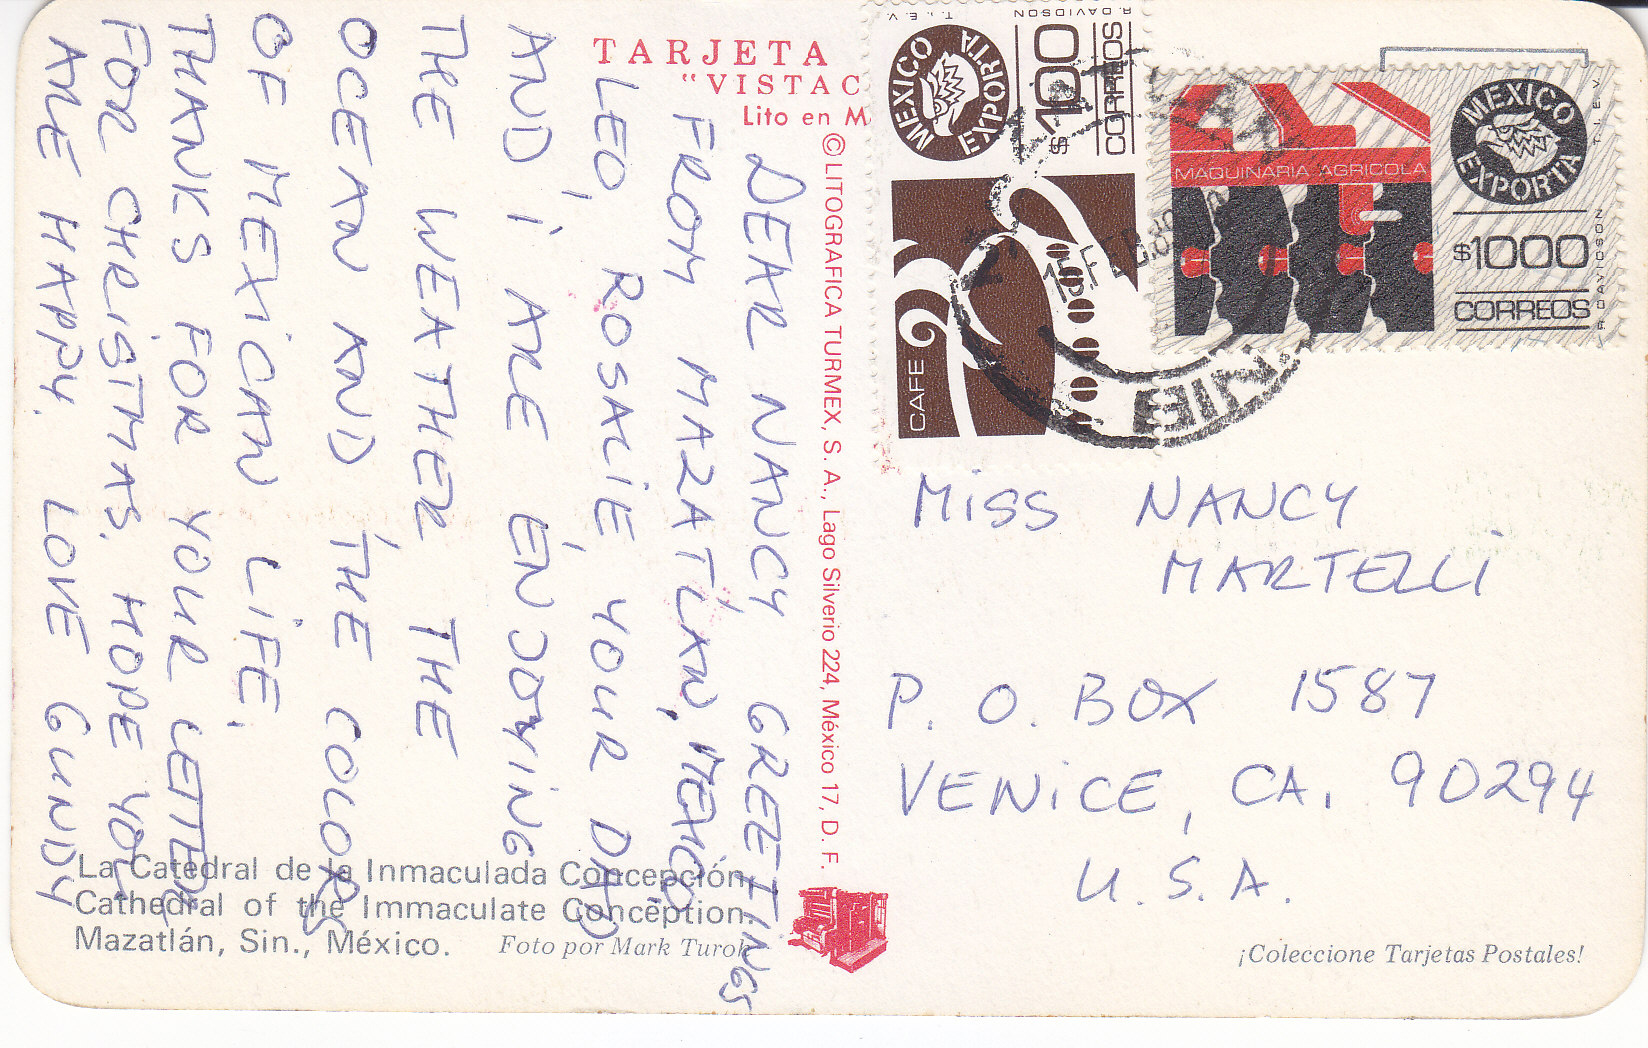 TARJETA
"VISTAC
Lito en M
© LITOGRAFICA TURMEX, S. A., Lago Silverio 224, México 17, D. F.
DEAR NANCY GREETINGS
FROM MAZATLAN, MEXICO
LEO, ROSALIE YOUR DAD
AND I, ARE ENJOYING
THE WEATHER THE
OCEAN AND THE COLORS
OF MEXICAN LIFE.
THANKS FOR YOUR LETTER
FOR CHRISTMAS. HOPE YOU
ARE HAPPY. LOVE GUNDY
La Catedral de la Inmaculada Concepción.
Cathedral of the Immaculate Conception.
Mazatlán, Sin., México. Foto por Mark Turok
T. I. E. V.
R. DAVIDSON
MEXICO EXPORTA
$100
CORREOS
CAFE
MAQUINARIA AGRICOLA
MEXICO EXPORTA
$1000
CORREOS
T. I. E. V.
R. DAVIDSON
MISS NANCY
MARTELLI
P. O. BOX 1587
VENICE, CA. 90294
U. S. A.
¡Coleccione Tarjetas Postales!